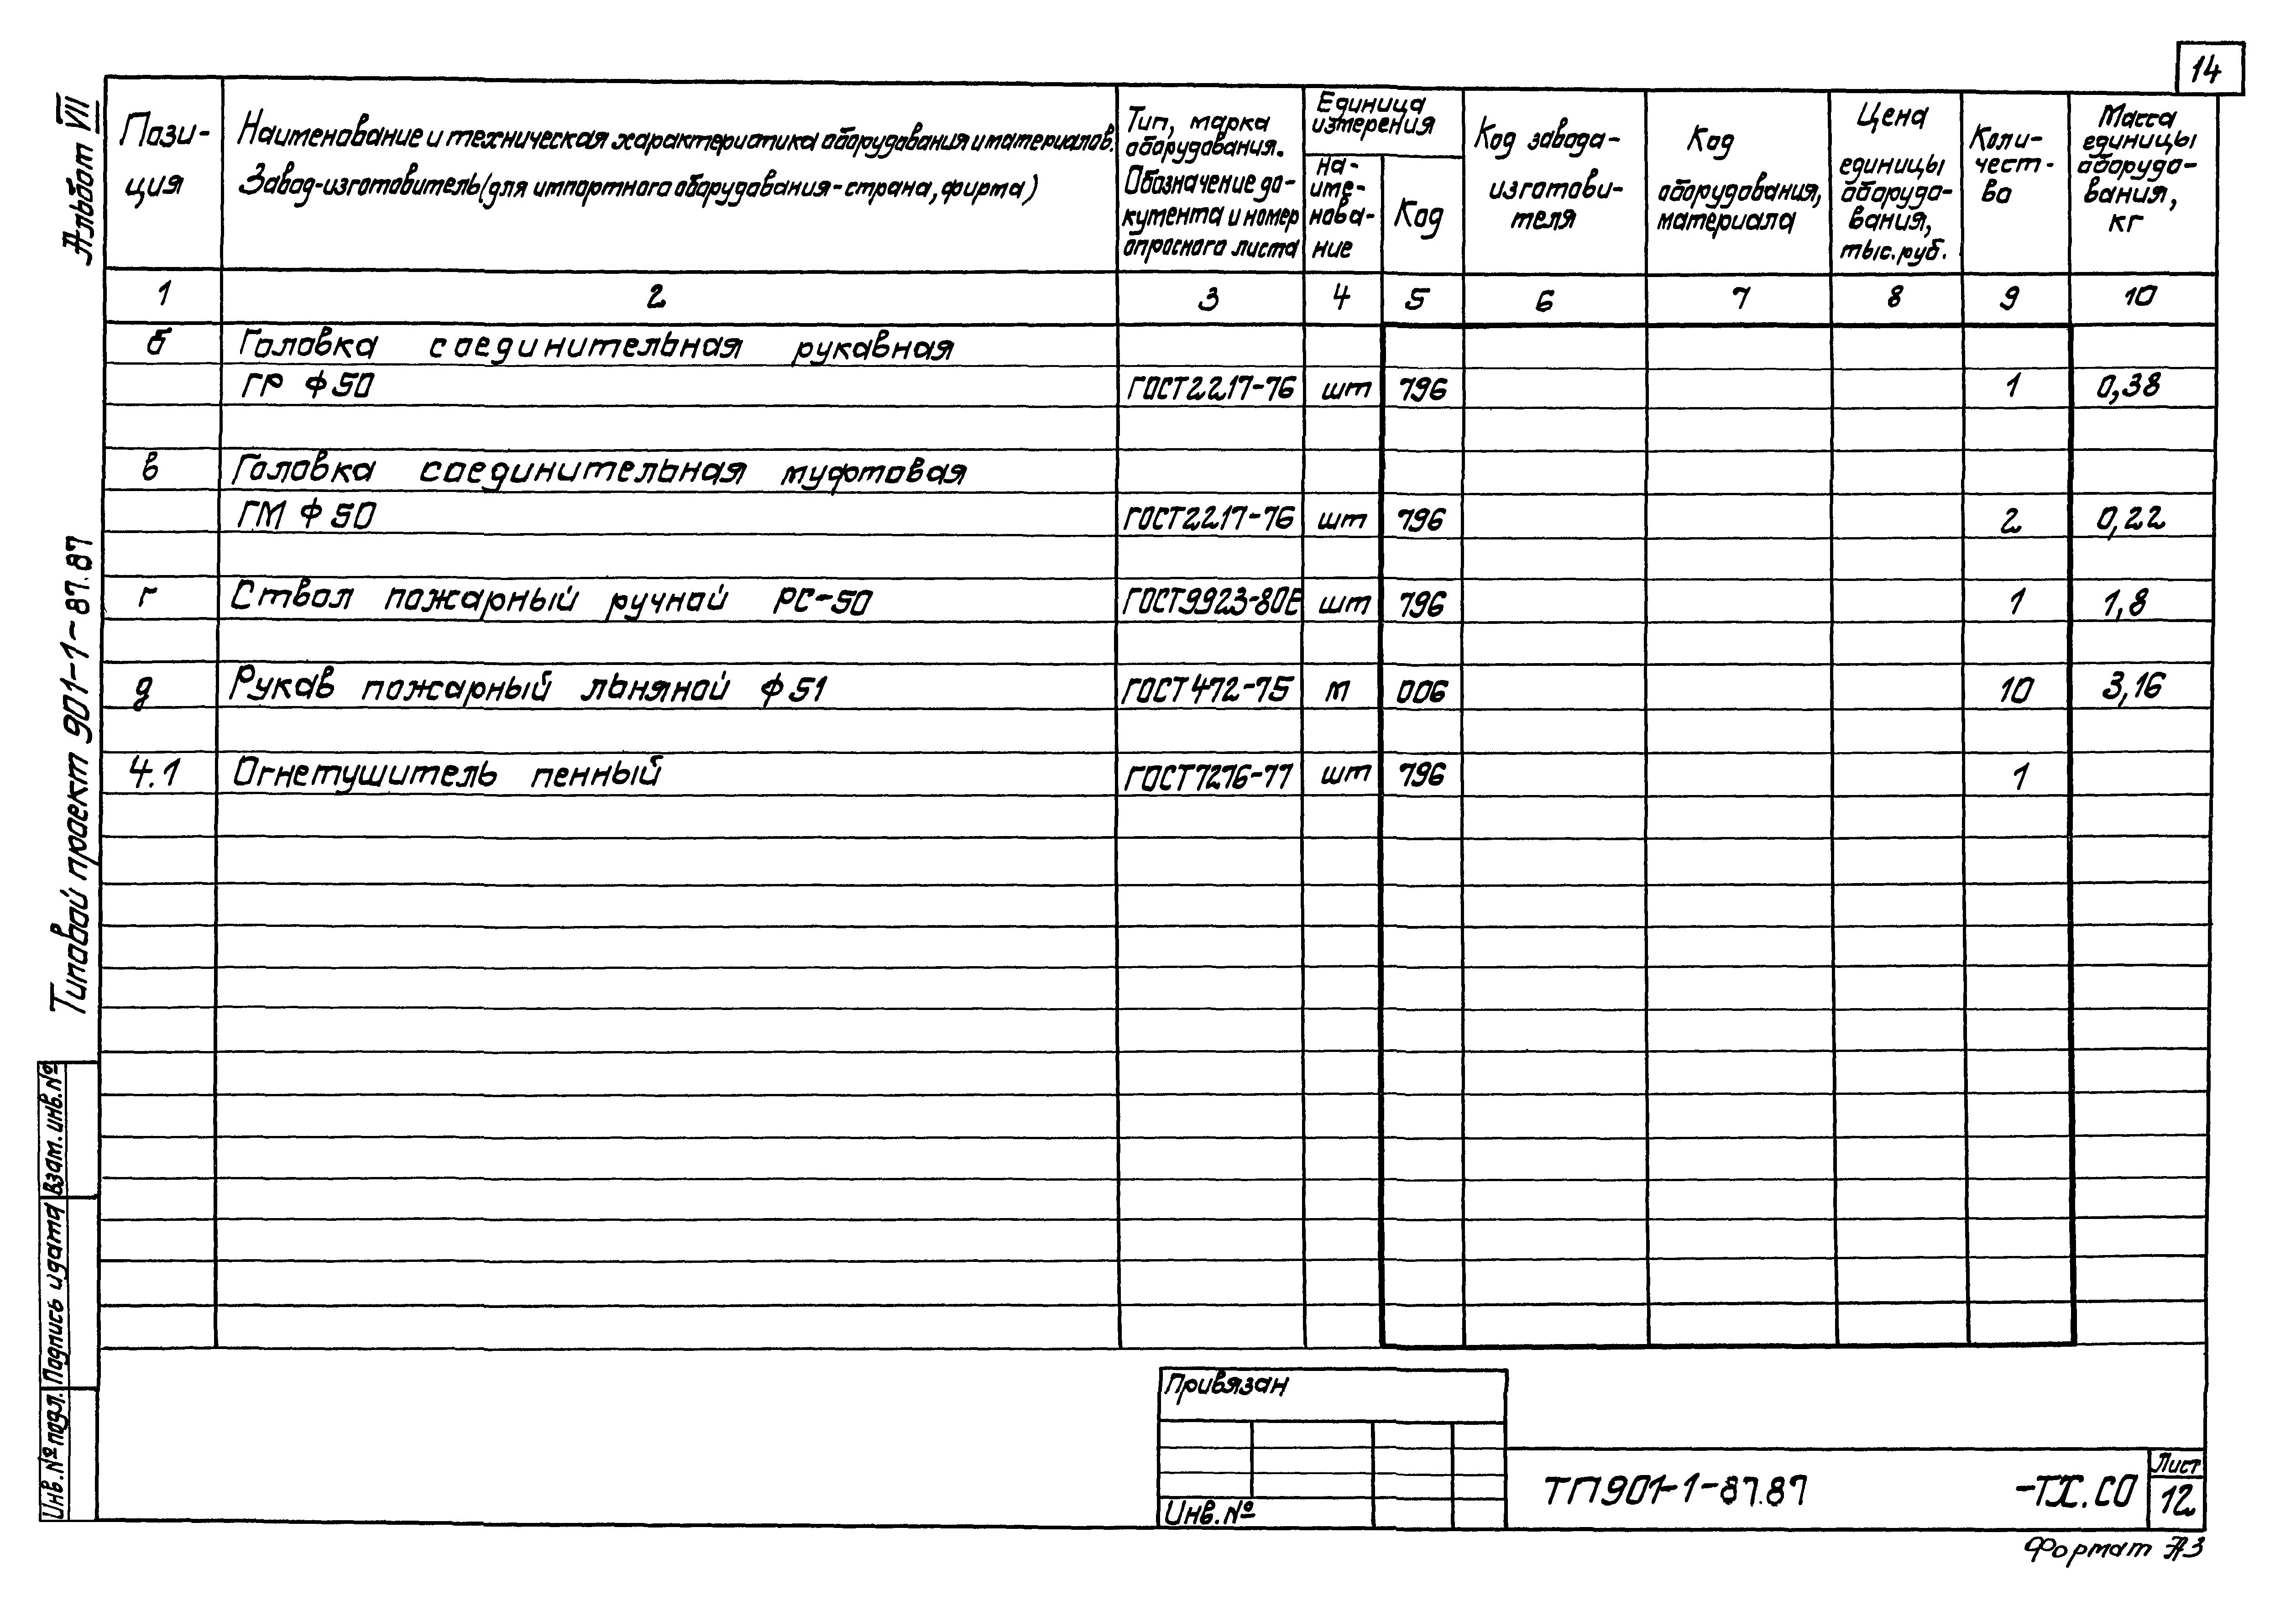 14
Альбом VII
Типовой проект 901-1-87.87
Взам. инв. №
Подпись и дата
Инв. № подл.
Пози-
ция
Наименование и техническая характеристика оборудования и материалов.
Завод-изготовитель (для импортного оборудования - страна, фирма)
Тип, марка
оборудования.
Обозначение до-
кумента и номер
опросного листа
Единица
измерения
На-
име-
нова-
ние
Код
Код завода-
изготови-
теля
Код
оборудования,
материала
Цена
единицы
оборудо-
вания,
тыс. руб.
Коли-
чест-
во
Масса
единицы
оборудо-
вания,
кг
1 2 3 4 5 6 7 8 9 10
б Головка соединительная рукавная
ГР Ф 50 ГОСТ 2217-76 шт 796 1 0,38
в Головка соединительная муфтовая
ГМ Ф 50 ГОСТ 2217-76 шт 796 2 0,22
г Ствол пожарный ручной РС-50 ГОСТ 9923-80Е шт 796 1 1,8
д Рукав пожарный льняной Ф 51 ГОСТ 472-75 м 006 10 3,16
4.1 Огнетушитель пенный ГОСТ 7276-77 шт 796 1
Привязан
Инв. №
ТП 901-1-87.87 -ТХ.СО
Лист
12
Формат А3